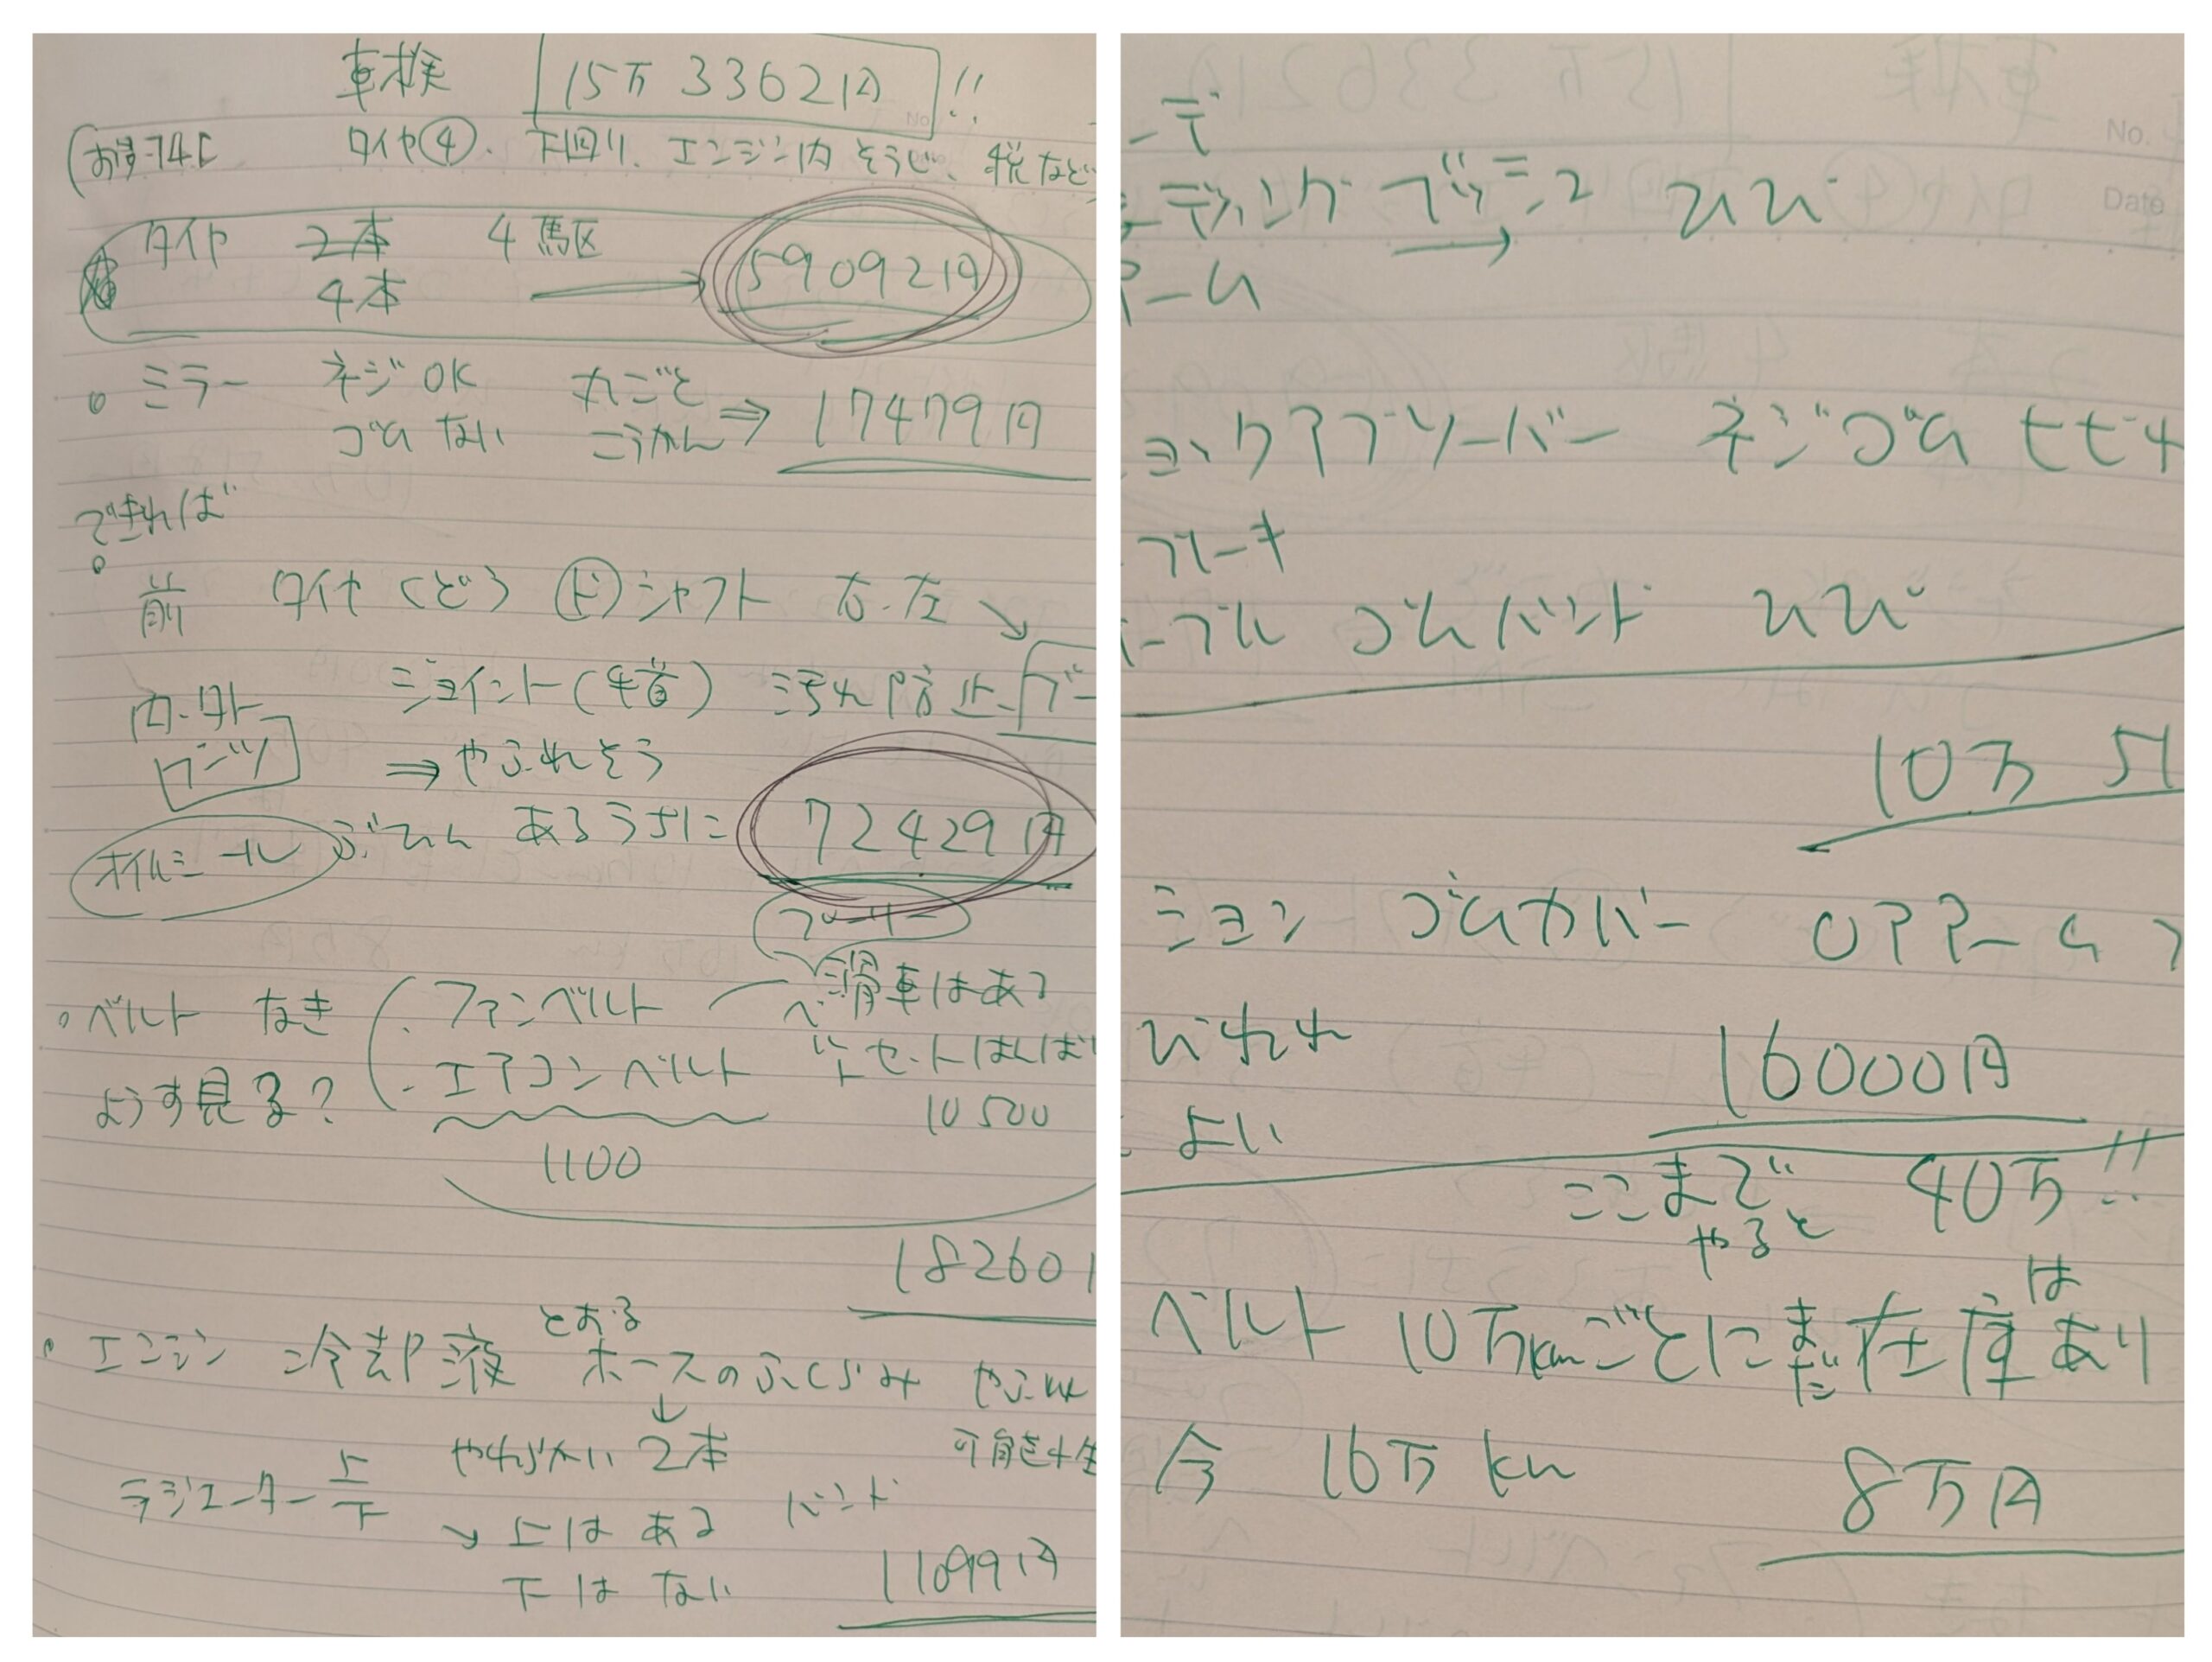 車検 15万3362円!!
タイヤ④、下回り、エンジン内そうじ、税など
タイヤ 2本 4馬区 59092円
4本
ミラー ネジOK 丸ごと
ゴムない こうかん ⇒ 17479円
できれば
前 タイヤ くどう ㋣シャフト 右・左
ジョイント(年首) 汚れ防止 ブー
内・外
ブーツ ⇒ やふれそう
オイルシール ぶひん あるうちに 72429円
プーリー
滑車はある
ベルト なき ・ファンベルト
ようす見る? ・エアコンベルト セットはんばい
1100 10500
18260
とおる
エンジン 冷却液 ホースのふくらみ やぶれ
↓ 可能性
ラジエーター 上 やわらかい 2本
下 上はある バンド
下はない 11099円
ーデ
ーディング ブッシュ ひび
アーム
ョックアブソーバー ネジゴム
ブレーキ
ーブル ゴムバンド ひび
10万 51
ション ゴムカバー ロアアーム
ひわれ 16000円
よい
ここまで 40万!!
やると
は
ベルト 10万kmごとに まだ 在庫あり
今 16万km 8万円